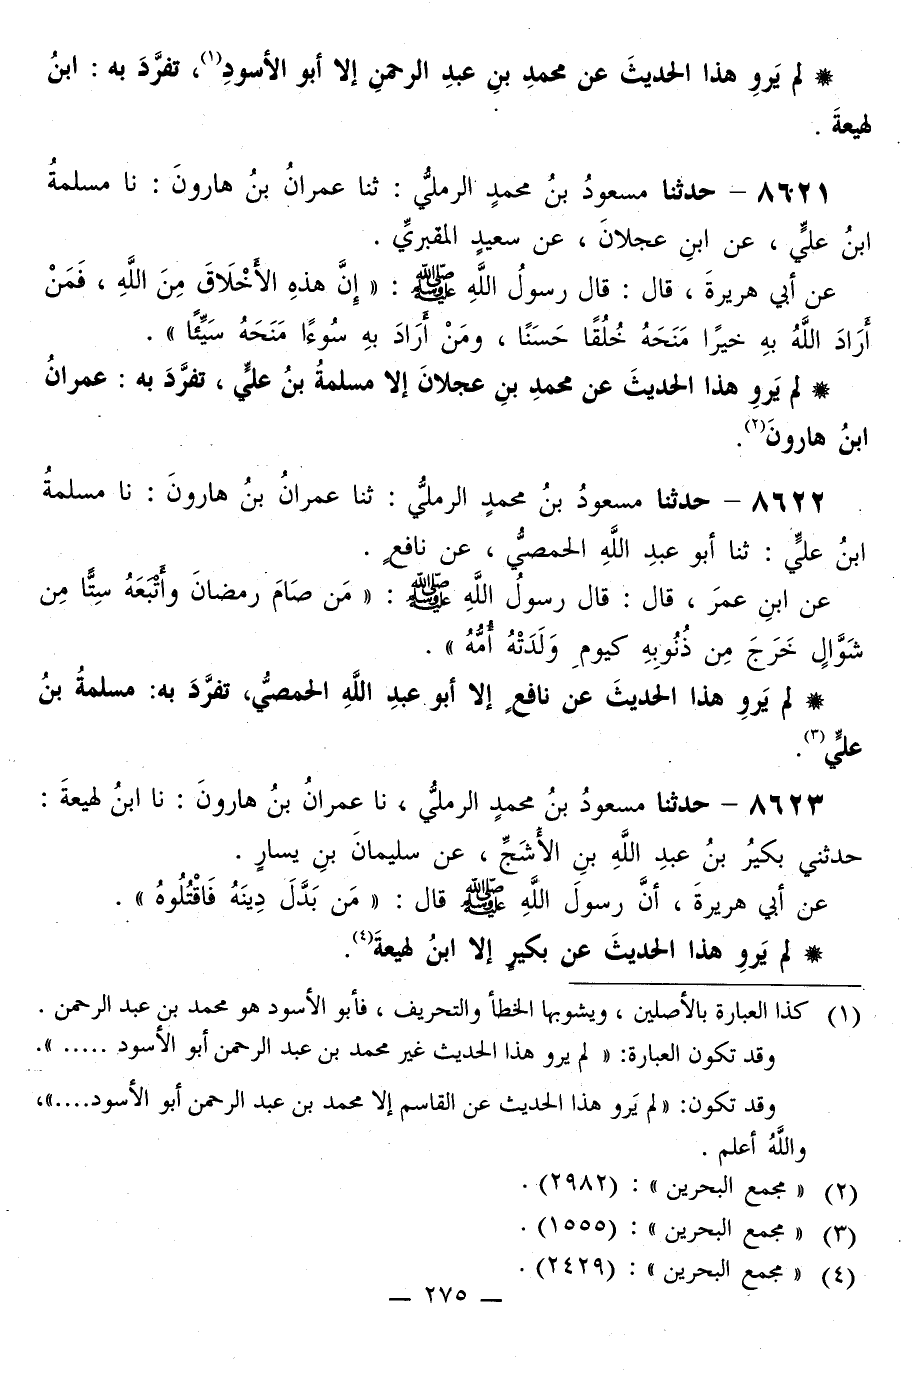 * لم يَروِ هذا الحديثَ عن محمدِ بنِ عبدِ الرحمنِ إلا أبو الأسودِ(١)، تفرَّدَ به : ابنُ
لهيعةَ .
٨٦٢١ – حدثنا مسعودُ بنُ محمدٍ الرمليُّ : ثنا عمرانُ بنُ هارونَ : نا مسلمةُ
ابنُ عليٍّ ، عن ابنِ عجلانَ ، عن سعيدٍ المقبريِّ .
عن أبي هريرةَ ، قال : قال رسولُ اللَّهِ ﷺ : « إِنَّ هذهِ الأَخْلَاقَ مِنَ اللَّهِ ، فَمَنْ
أَرَادَ اللَّهُ بهِ خيرًا مَنَحَهُ خُلُقًا حَسَنًا ، ومَنْ أَرَادَ بهِ سُوءًا مَنَحَهُ سَيِّئًا » .
* لم يَروِ هذا الحديثَ عن محمدِ بنِ عجلانَ إلا مسلمةُ بنُ عليٍّ ، تفرَّدَ به : عمرانُ
ابنُ هارونَ(٢).
٨٦٢٢ – حدثنا مسعودُ بنُ محمدٍ الرمليُّ : ثنا عمرانُ بنُ هارونَ : نا مسلمةُ
ابنُ عليٍّ : ثنا أبو عبدِ اللَّهِ الحمصيُّ ، عن نافعٍ .
عن ابنِ عمرَ ، قال : قال رسولُ اللَّهِ ﷺ : « مَن صَامَ رمضانَ وأَتْبَعَهُ سِتًّا مِن
شَوَّالٍ خَرَجَ مِن ذُنُوبِهِ كيومِ وَلَدَتْهُ أُمُّهُ » .
* لم يَروِ هذا الحديثَ عن نافعٍ إلا أبو عبدِ اللَّهِ الحمصيُّ، تفرَّدَ به: مسلمةُ بنُ
عليٍّ(٣).
٨٦٢٣ – حدثنا مسعودُ بنُ محمدٍ الرمليُّ ، نا عمرانُ بنُ هارونَ : نا ابنُ لهيعةَ :
حدثني بكيرُ بنُ عبدِ اللَّهِ بنِ الأَشَجِّ ، عن سليمانَ بنِ يسارٍ .
عن أبي هريرةَ ، أنَّ رسولَ اللَّهِ ﷺ قال : « مَن بَدَّلَ دِينَهُ فَاقْتُلُوهُ » .
* لم يَروِ هذا الحديثَ عن بكيرٍ إلا ابنُ لهيعةَ(٤).
(١) كذا العبارة بالأصلين ، ويشوبها الخطأ والتحريف ، فأبو الأسود هو محمد بن عبد الرحمن .
وقد تكون العبارة: « لم يرو هذا الحديث غير محمد بن عبد الرحمن أبو الأسود ..... ».
وقد تكون: «لم يَرو هذا الحديث عن القاسم إلا محمد بن عبد الرحمن أبو الأسود....»،
واللَّهُ أعلم .
(٢) « مجمع البحرين » : (٢٩٨٢) .
(٣) « مجمع البحرين » : (١٥٥٥) .
(٤) « مجمع البحرين » : (٢٤٢٩) .
— ٢٧٥ —